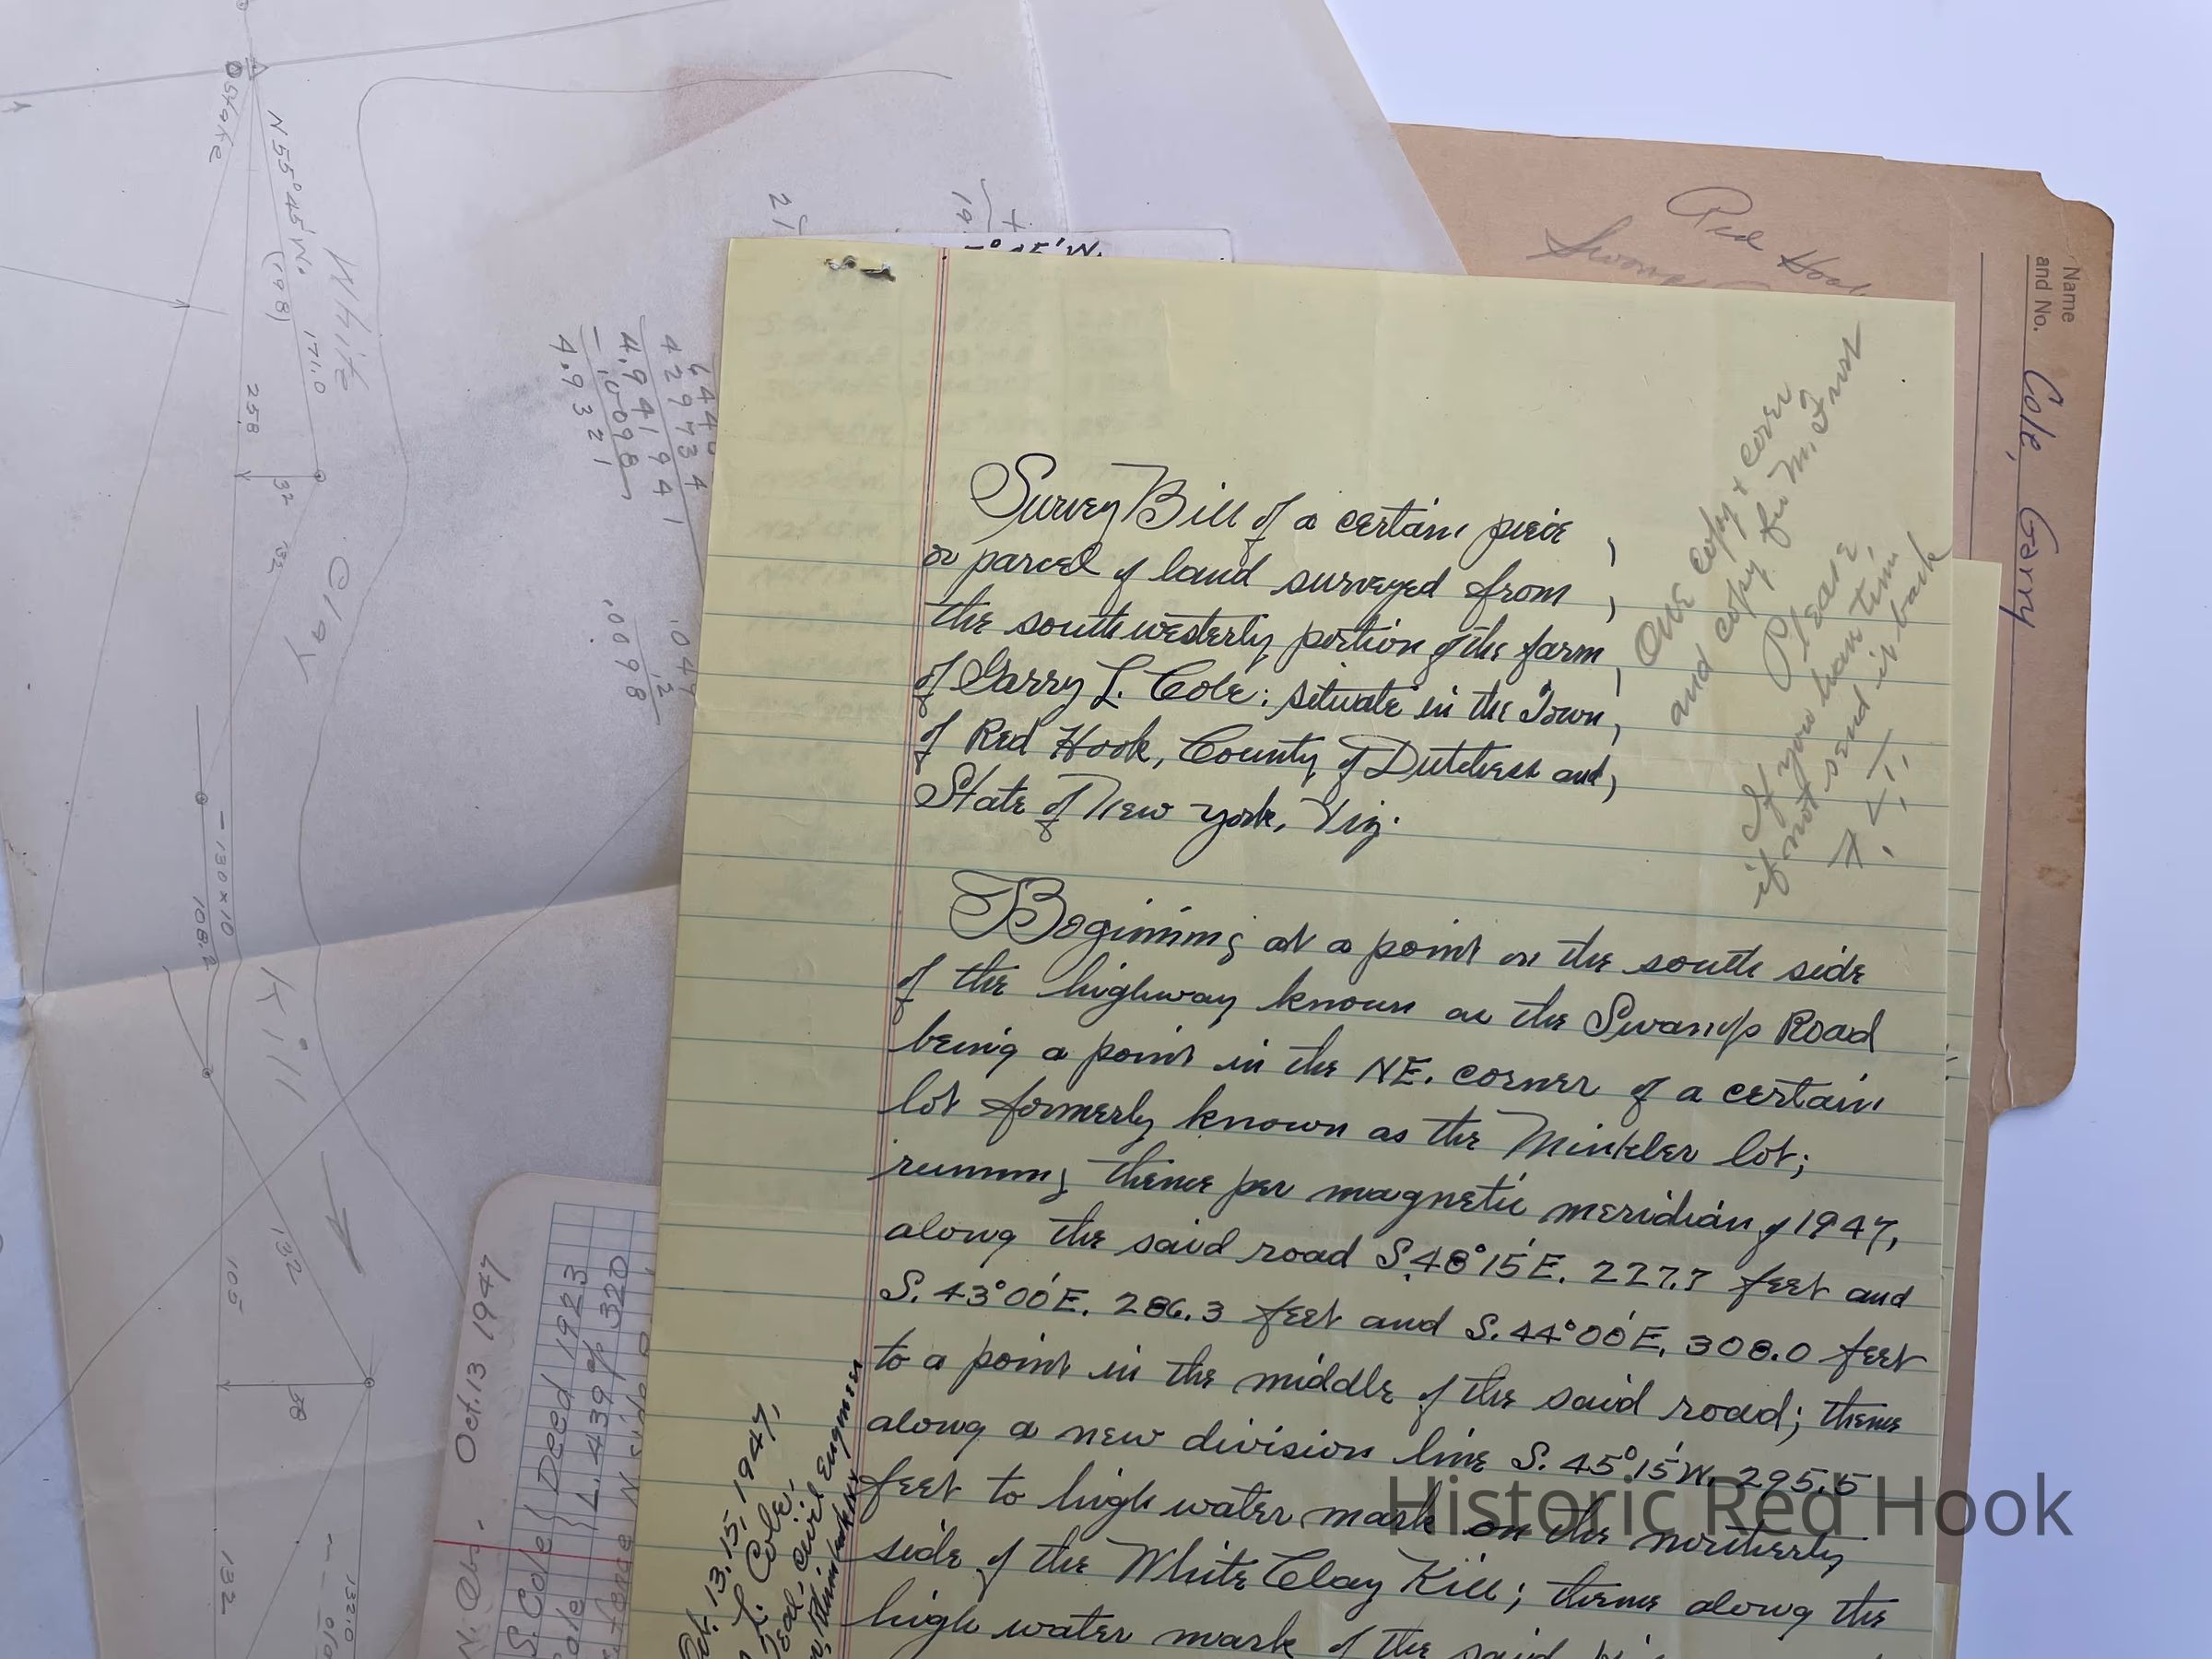 Survey Bill of a certain piece
or parcel of land surveyed from
the southwesterly portion of the farm
of Garry L. Cole: situate in the Town,
of Red Hook, County of Dutchess and,
State of New York, Viz.
Beginning at a point on the south side
of the highway known as the Swamp Road
being a point in the NE. corner of a certain
lot formerly known as the Minkler lot;
running thence per magnetic meridian of 1947,
along the said road S.48°15'E. 227.7 feet and
S. 43°00'E. 286.3 feet and S. 44°00'E. 308.0 feet
to a point in the middle of the said road; thence
along a new division line S. 45°15'W. 295.5
feet to high water mark on the northerly
side of the White Clay Kill; thence along the
high water mark of the said
One copy & cover
and copy for M. Frost
Please,
If you have time
if not send it back
Oct. 13, 15, 1947,
L. Cole,
civil Engineer
Name
and No. Cole, Garry
Red Hook
Stake
N 55° 45' W.
(198)
171.0
White
258
32
132
Clay
130 x 10
108.2
Kill
132
105
38
132
132.0
4.94194
.0098
4.9321
.049
.2
.0098
21
19
Oct. 13 1947
S. Cole Deed 1923
L. 439 p 320
Historic Red Hook